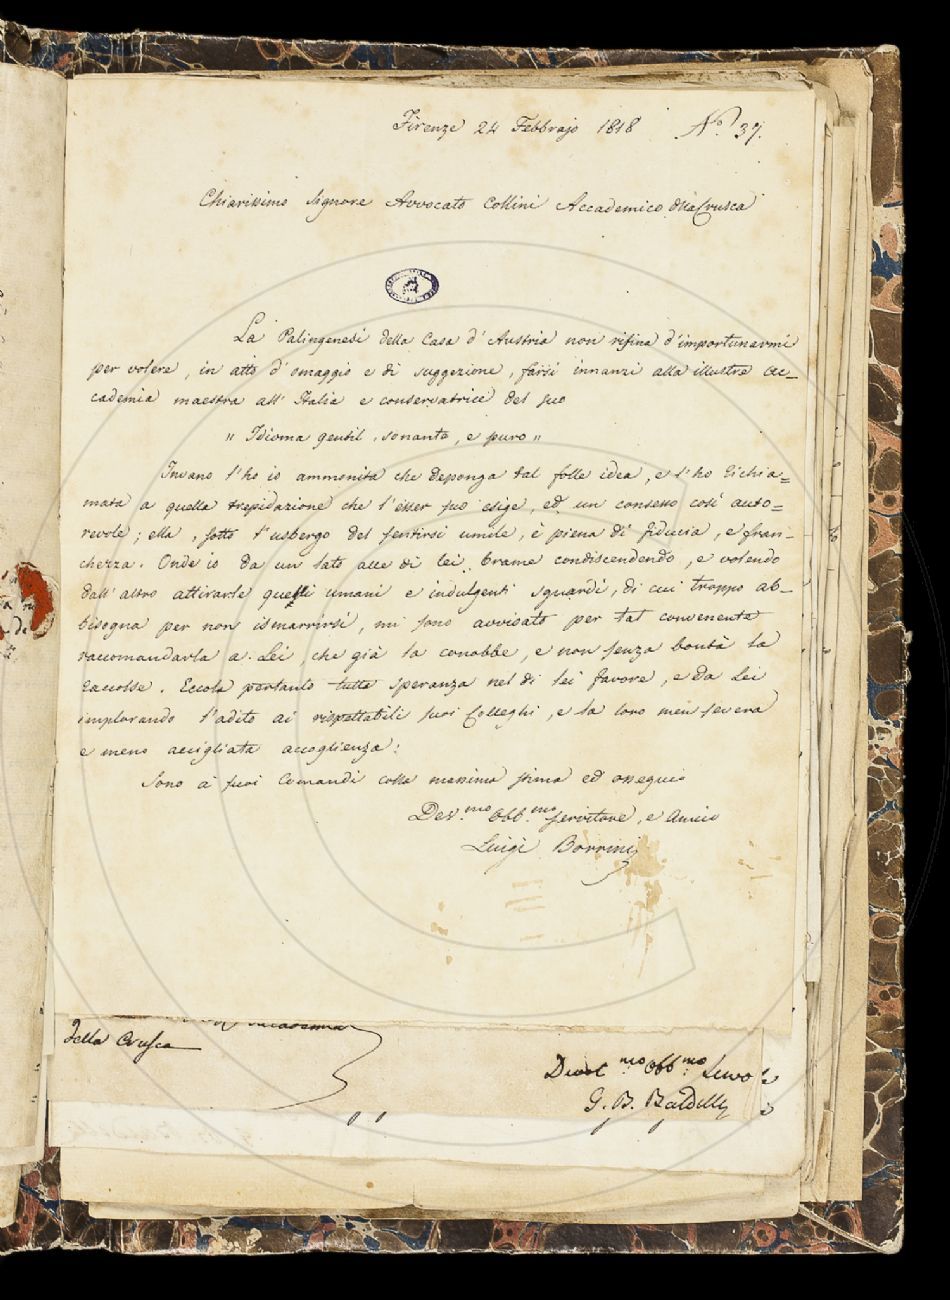 Firenze 24 Febbrajo 1818 N.º 37.
Chiarissimo Signore Avvocato Collini Accademico della Crusca
La Palingenesi della Casa d'Austria non rifina d'importunarmi
per volere, in atto d'omaggio e di suggezione, farsi innanzi alla illustre Ac=
cademia maestra all'Italia e conservatrice del suo
" Idioma gentil, sonante, e puro "
Invano l'ho io ammonita che deponga tal folle idea, e l'ho richia=
mata a quella trepidazione che l'esser suo esige, ed un consesso così auto=
revole; ella, sotto l'usbergo del sentirsi umile, è piena di fiducia, e fran=
chezza. Onde io da un lato alle di lei brame condiscendendo, e volendo
dall'altro attirarle quelli umani e indulgenti sguardi, di cui troppo ab=
bisogna per non ismarrirsi, mi sono avvisato per tal convenente
raccomandarla a Lei, che già la conobbe, e non senza bontà la
raccolse. Eccola pertanto tutta speranza nel di lei favore, e da Lei
implorando l'adito ai rispettabili suoi Colleghi, e la loro men severa
e meno accigliata accoglienza:
Sono a' suoi Comandi colla massima stima ed ossequio
Dev.mo Obb.mo servitore, e amico
Luigi Borrini
della Crusca
Devot.mo Obb.mo Servo
G. B. Baldelli